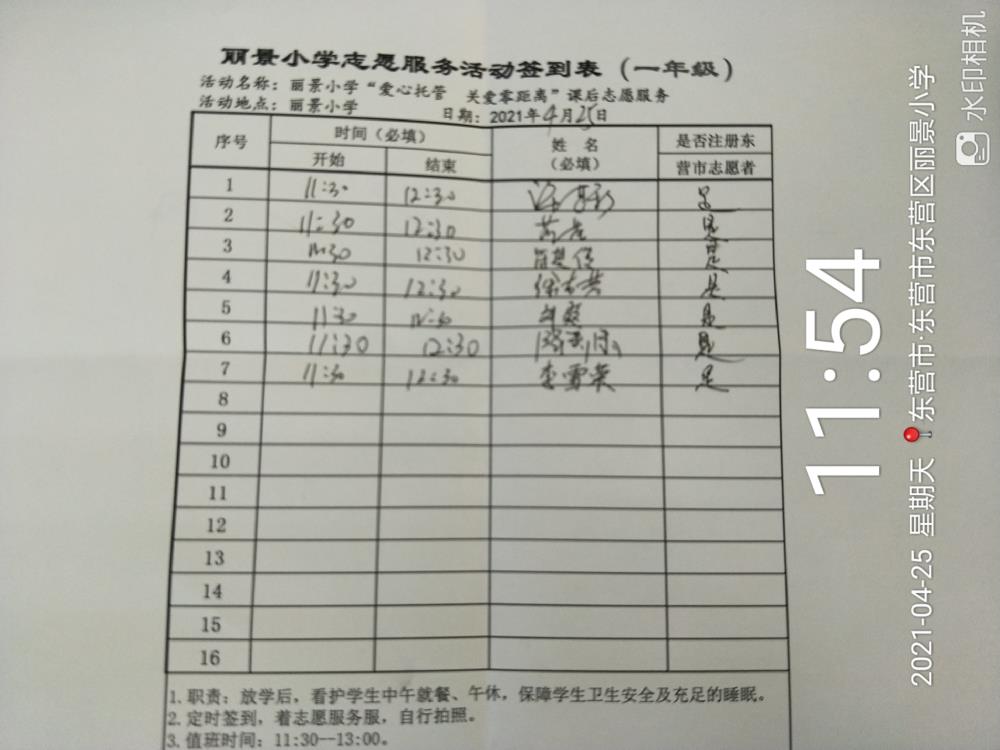 丽景小学志愿服务活动签到表（一年级）
活动名称：丽景小学“爱心托管 关爱零距离”课后志愿服务
活动地点：丽景小学 日期：2021年4月25日
序号 时间（必填） 姓名（必填） 是否注册东营市志愿者
开始 结束
1 11:30 12:30 是
2 11:30 12:30 是
3 11:30 12:30 是
4 11:30 12:30 是
5 11:30 12:30 是
6 11:30 12:30 是
7 11:30 12:30 李雪荣 是
8
9
10
11
12
13
14
15
16
1.职责：放学后，看护学生中午就餐、午休，保障学生卫生安全及充足的睡眠。
2.定时签到，着志愿服务服，自行拍照。
3.值班时间：11:30--13:00。
11:54
2021-04-25 星期天 东营市·东营市东营区丽景小学
水印相机